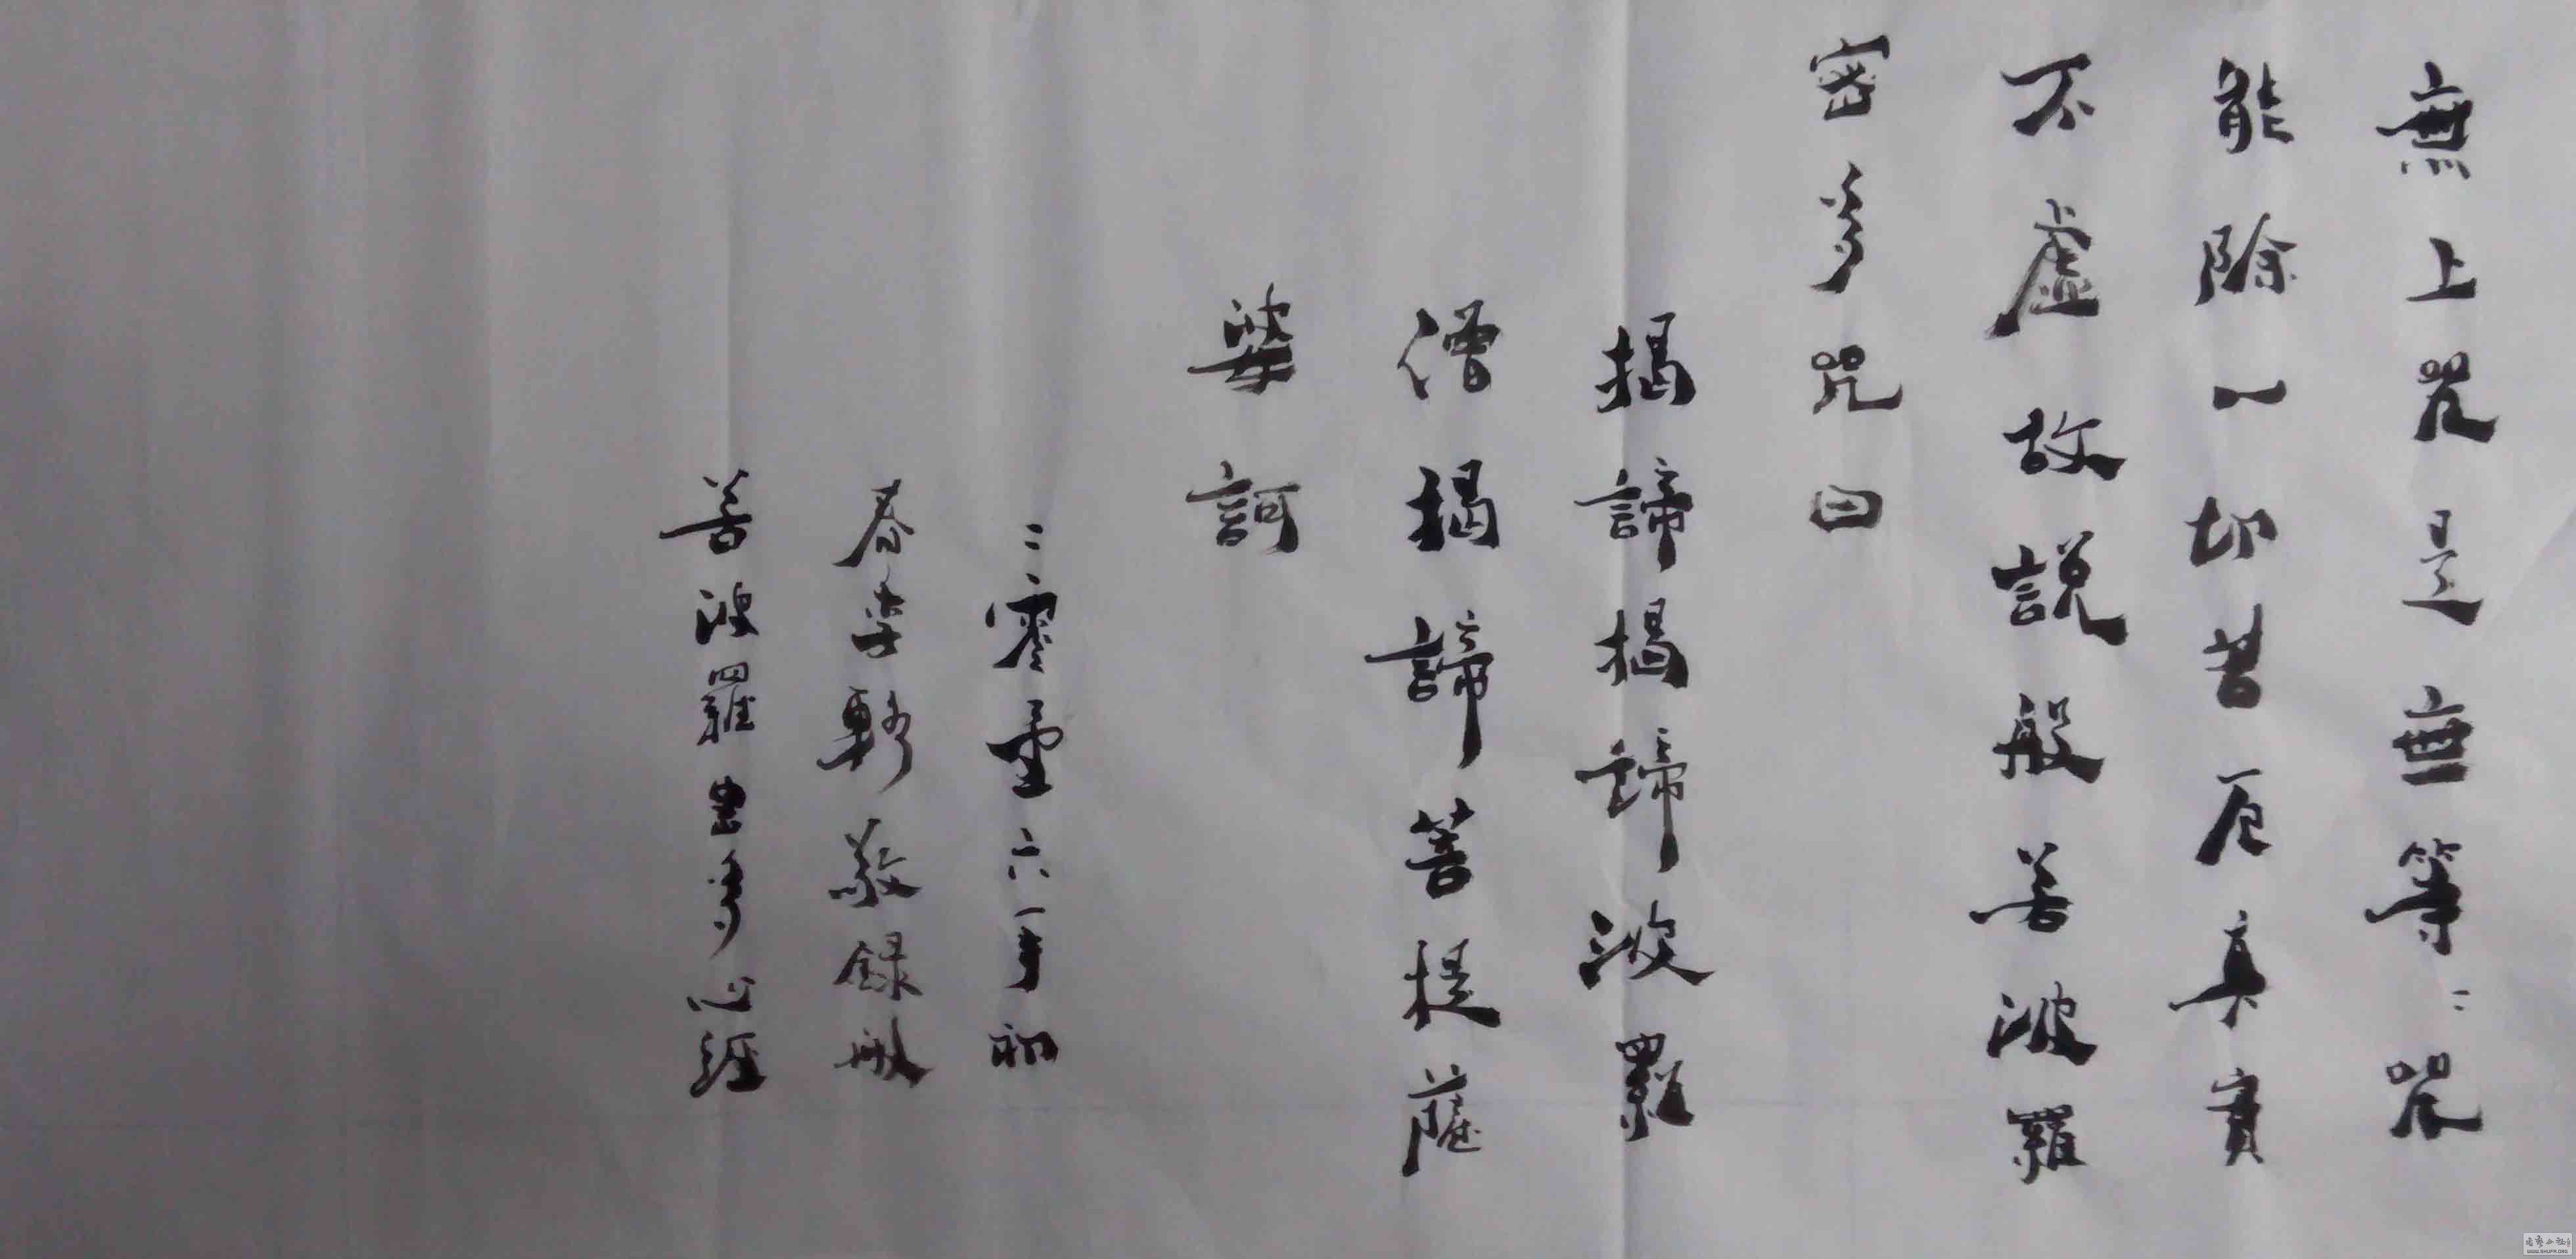 無上咒是無等々咒
能除一切苦厄真實
不虛故説般若波羅
密多咒曰
揭諦揭諦波羅
僧揭諦菩提薩
婆訶
二零壹六年初
春李敬録般
若波羅多心經